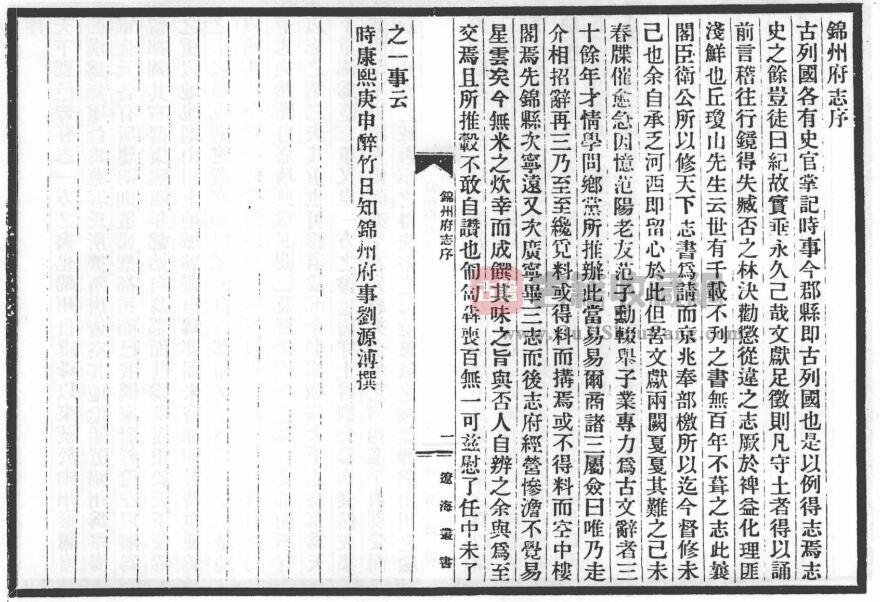 錦州府志序
古列國各有史官掌記時事今郡縣即古列國也是以例得志焉志
史之餘豈徒曰紀故實垂永久己哉文獻足徵則凡守土者得以誦
前言稽往行鏡得失臧否之林決勸懲從違之志厥於裨益化理匪
淺鮮也丘瓊山先生云世有千載不列之書無百年不葺之志此曩
閣臣衛公所以修天下志書爲請而京兆奉部檄所以迄今督修未
己也余自承乏河西即留心於此但苦文獻兩闕戛戛其難之己未
春牒催愈急因憶范陽老友范子勳輟舉子業專力爲古文辭者三
十餘年才情學問鄉黨所推辦此當易易爾商諸三屬僉曰唯乃走
介相招辭再三乃至至纔覓料或得料而搆焉或不得料而空中樓
閣焉先錦縣次寧遠又次廣寧畢三志而後志府經營慘澹不覺易
星雲矣今無米之炊幸而成饌其味之旨與否人自辨之余與爲至
交焉且所推轂不敢自讚也衂喪百無一可兹慰了任中未了
之一事云
時康熙庚申醉竹日知錦州府事劉源溥撰
錦州府志序
一
遼海叢書
古籍收藏
www.GuJiShuFang.com